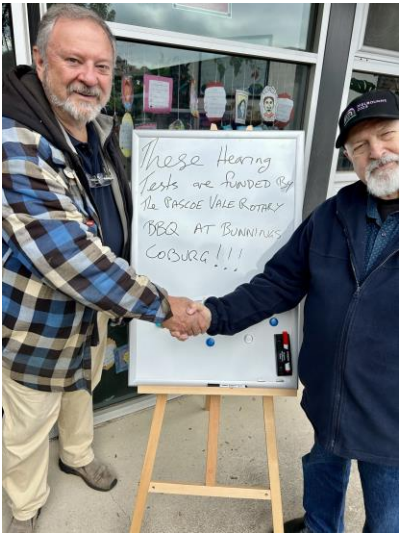 These Hearing
Tests are FUNDED By
The PASCOE VALE ROTARY
BBQ AT BUNNINGS
COBURG!!!